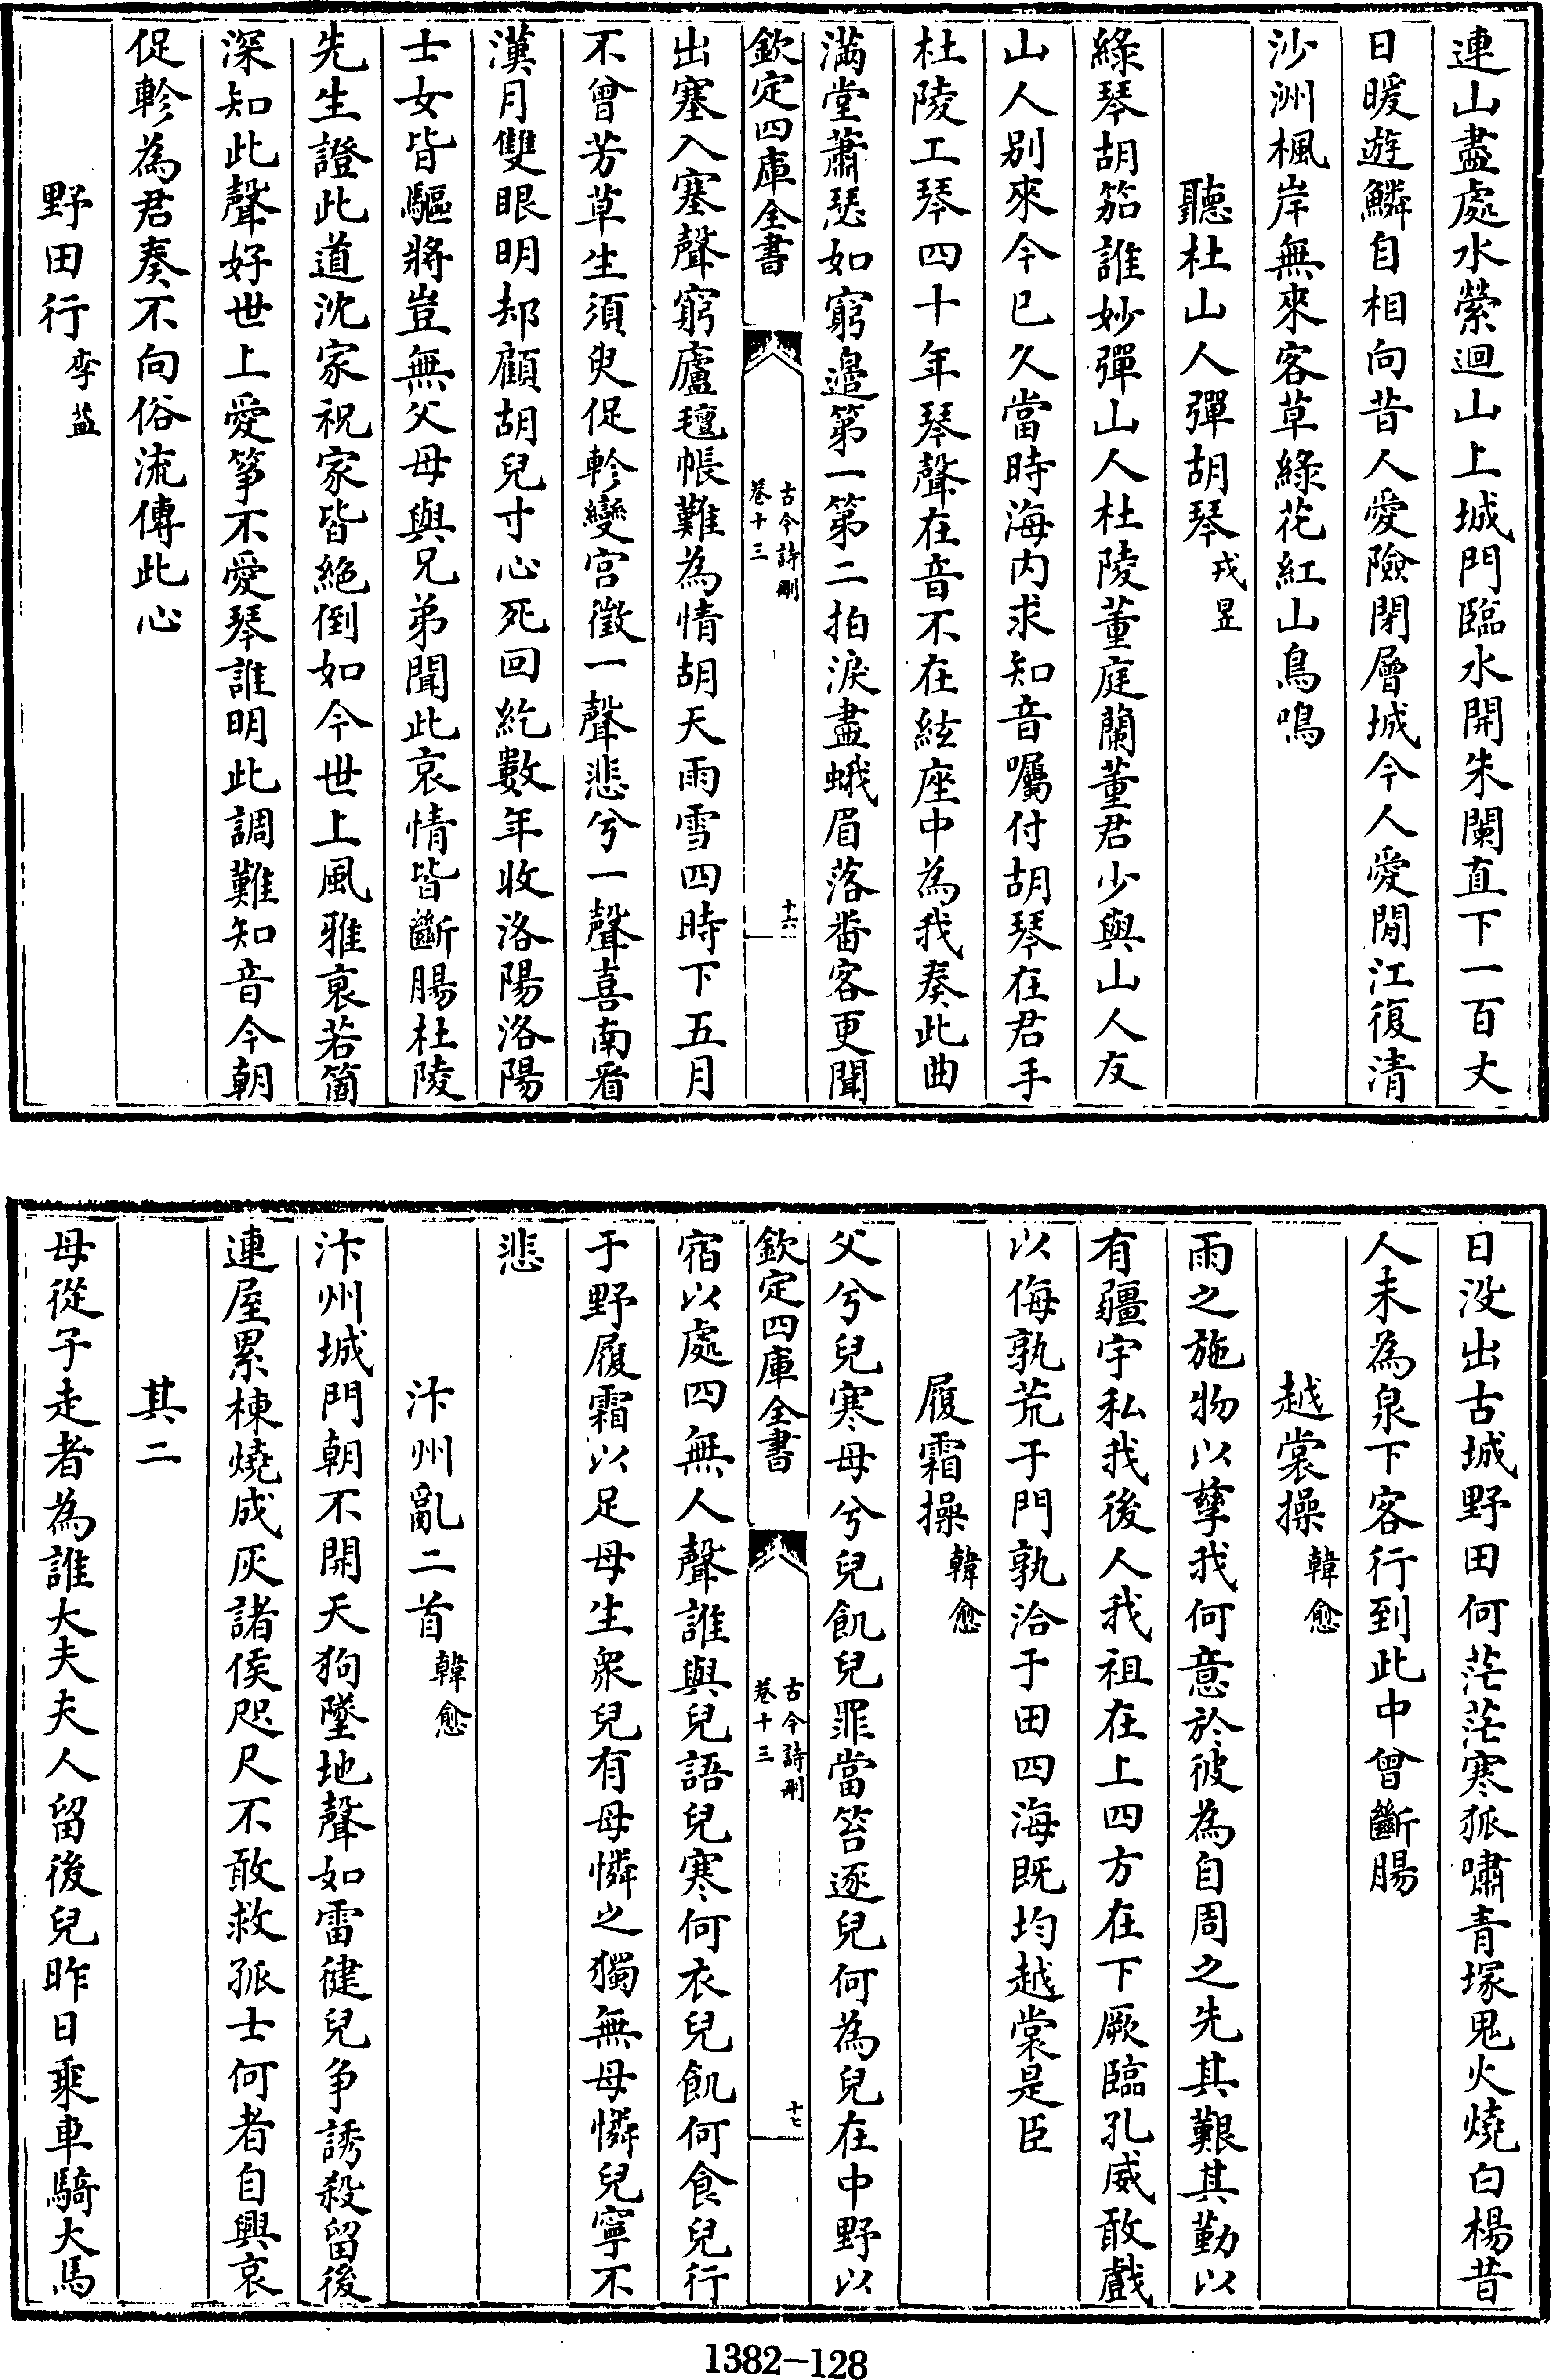 連山盡處水縈迴山上城門臨水開朱闌直下一百丈
日暖遊鱗自相向昔人愛險閉層城今人愛閒江復清
沙洲楓岸無來客草綠花紅山鳥鳴
聽杜山人彈胡琴 戎昱
綠琴胡笳誰妙彈山人杜陵董庭蘭董君少與山人友
山人别來今已久當時海内求知音囑付胡琴在君手
杜陵工琴四十年琴聲在音不在絃座中為我奏此曲
滿堂蕭瑟如窮邊第一第二拍淚盡蛾眉落番客更聞
欽定四庫全書
古今詩刪
卷十三
十六
出塞入塞聲窮廬氊帳難為情胡天雨雪四時下五月
不曾芳草生須臾促軫變宫徵一聲悲兮一聲喜南看
漢月雙眼明却顧胡兒寸心死回紇數年收洛陽洛陽
士女皆驅將豈無父母與兄弟聞此哀情皆斷腸杜陵
先生證此道沈家祝家皆絶倒如今世上風雅衰若箇
深知此聲好世上愛箏不愛琴誰明此調難知音今朝
促軫為君奏不向俗流傳此心
野田行 李益
日没出古城野田何茫茫寒狐嘯青塚鬼火燒白楊昔
人未為泉下客行到此中曾斷腸
越裳操 韓愈
雨之施物以孳我何意於彼為自周之先其艱其勤以
有疆宇私我後人我祖在上四方在下厥臨孔威敢戲
以侮孰荒于門孰治于田四海既均越裳是臣
履霜操 韓愈
父兮兒寒母兮兒飢兒罪當笞逐兒何為兒在中野以
欽定四庫全書
古今詩刪
卷十三
十七
宿以處四無人聲誰與兒語兒寒何衣兒飢何食兒行
于野履霜以足母生衆兒有母憐之獨無母憐兒寧不
悲
汴州亂二首 韓愈
汴州城門朝不開天狗墜地聲如雷健兒争誘殺留後
連屋累棟燒成灰諸侯咫尺不敢救孤士何者自興哀
其二
母從子走者為誰大夫夫人留後兒昨日乘車騎大馬
1382-128